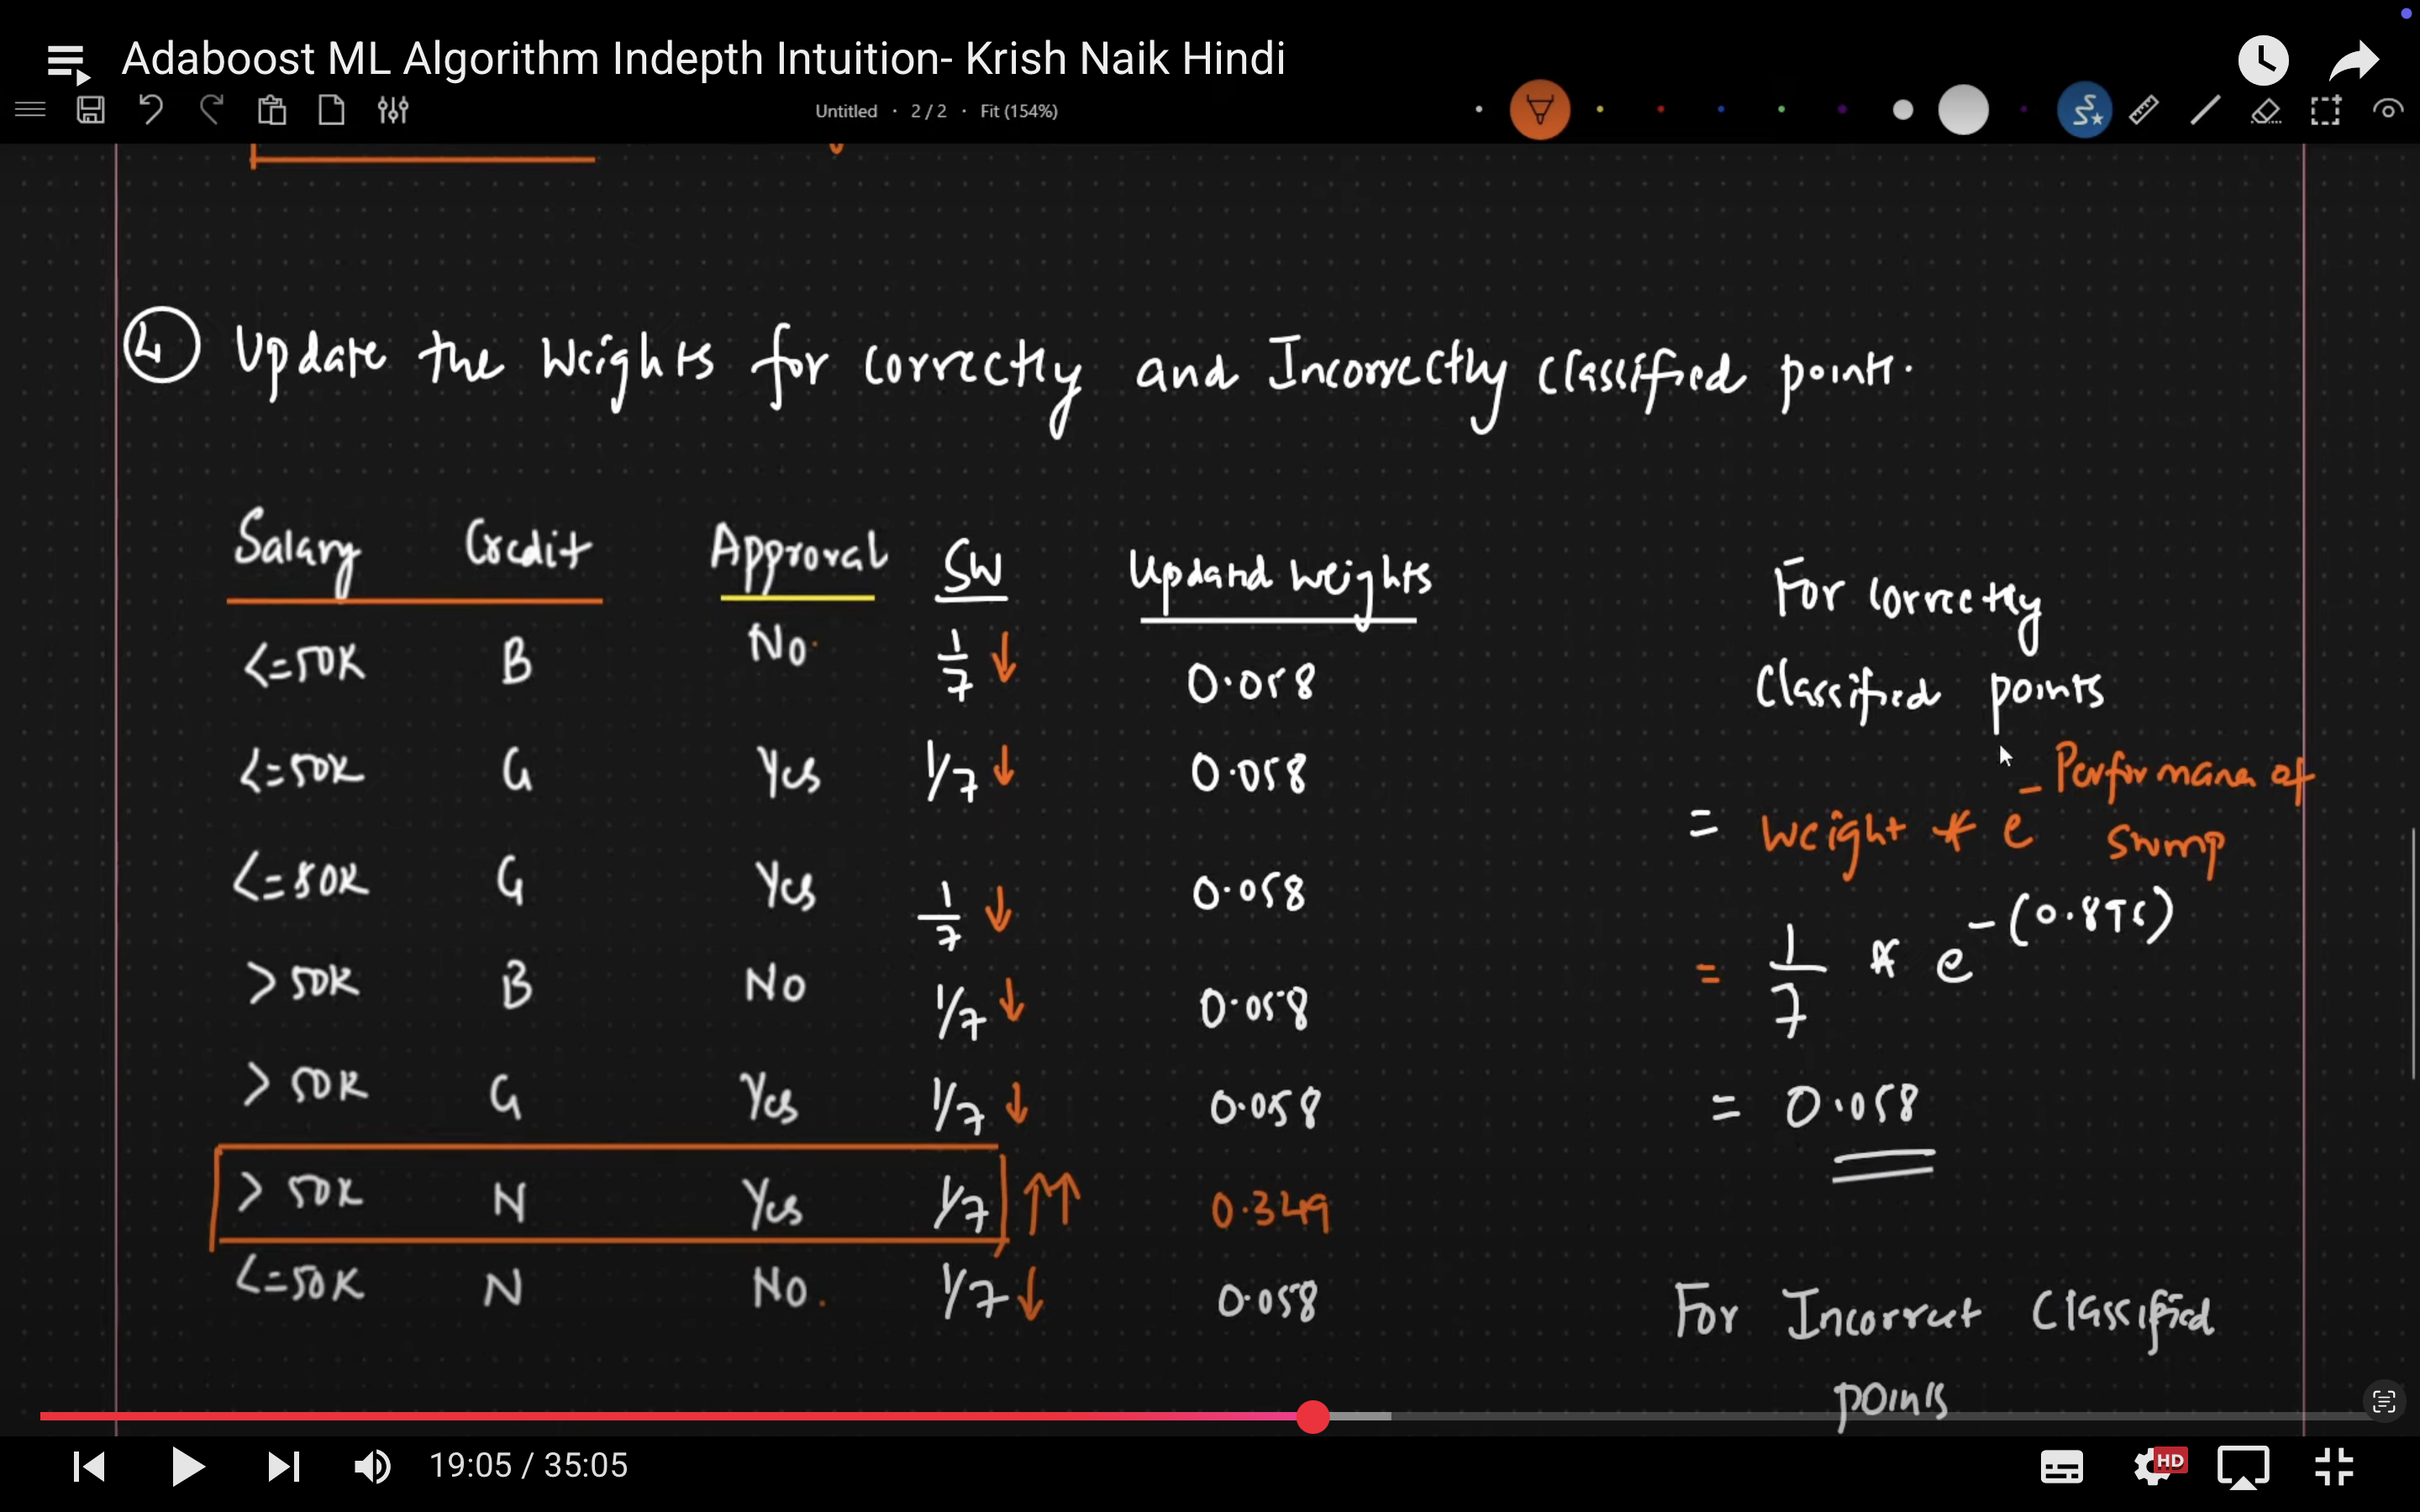 Adaboost ML Algorithm Indepth Intuition- Krish Naik Hindi
Untitled · 2 / 2 · Fit (154%)
④ Update the Weights for correctly and Incorrectly classified points.
Salary Credit Approval SW Updated weights
<=50K B No 1/7 ↓ 0.058
<=50K G Yes 1/7 ↓ 0.058
<=50K G Yes 1/7 ↓ 0.058
>50K B No 1/7 ↓ 0.058
>50K G Yes 1/7 ↓ 0.058
>50K N Yes 1/7 ↑↑ 0.349
<=50K N No 1/7 ↓ 0.058
For correctly
Classified points
= weight * e - Performance of
Stump
= 1/7 * e -(0.896)
= 0.058
For Incorrect Classified
points
19:05 / 35:05
HD